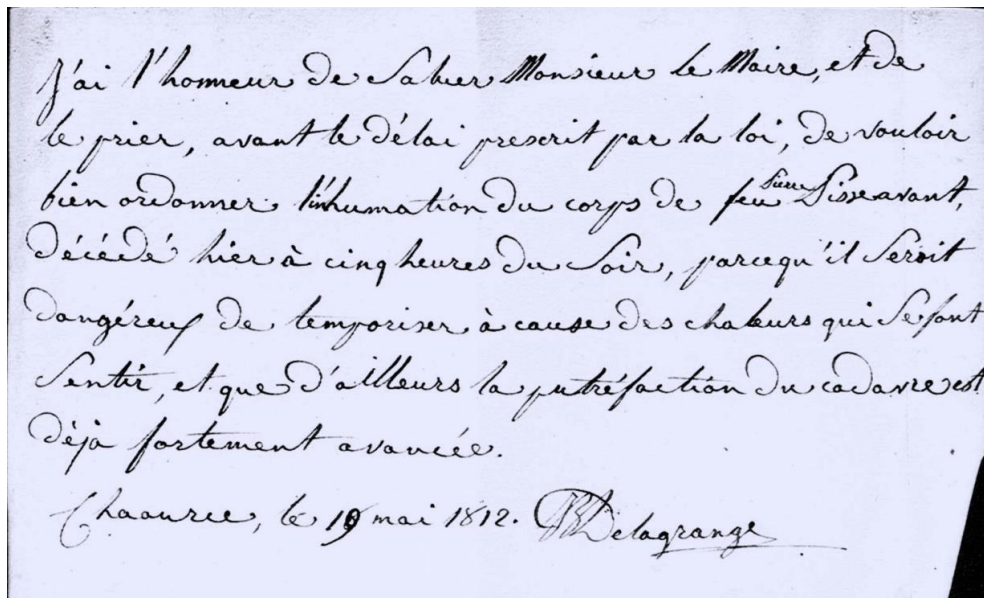 J'ai l'honneur de Saluer Monsieur le Maire, et de
le prier, avant le délai prescrit par la loi, de vouloir
bien ordonner l'inhumation du corps de feu Pierre Disseavant,
décédé hier à cinq heures du Soir, parcequ'il Seroit
dangéreux de temporiser à cause des chaleurs qui Se font
Sentir, et que d'ailleurs la putréfaction du cadavre est
déja fortement avancée.
Chaource, le mai 1812. Delagrange